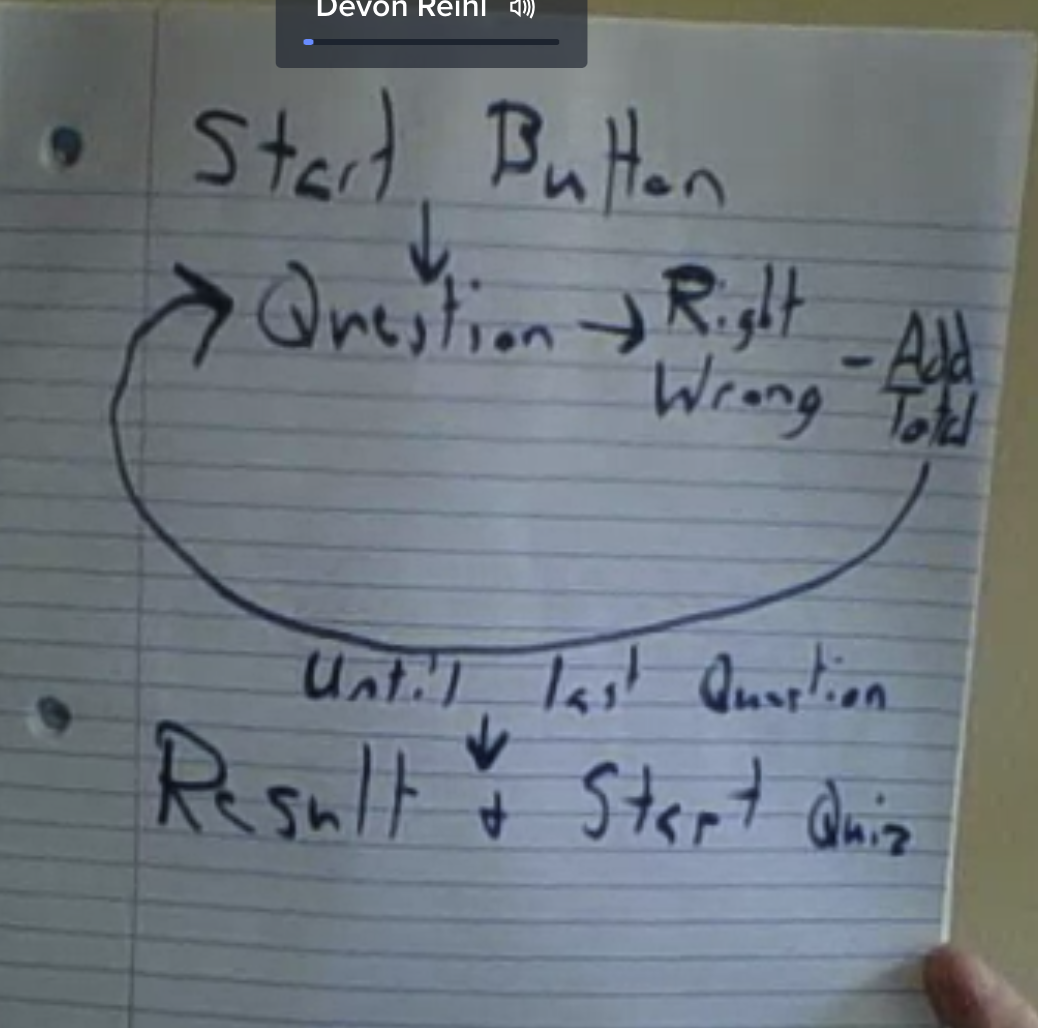 Devon Reihl
Start Button
Question → Right
Wrong - Add
Total
Until last Question
Result + Start Quiz